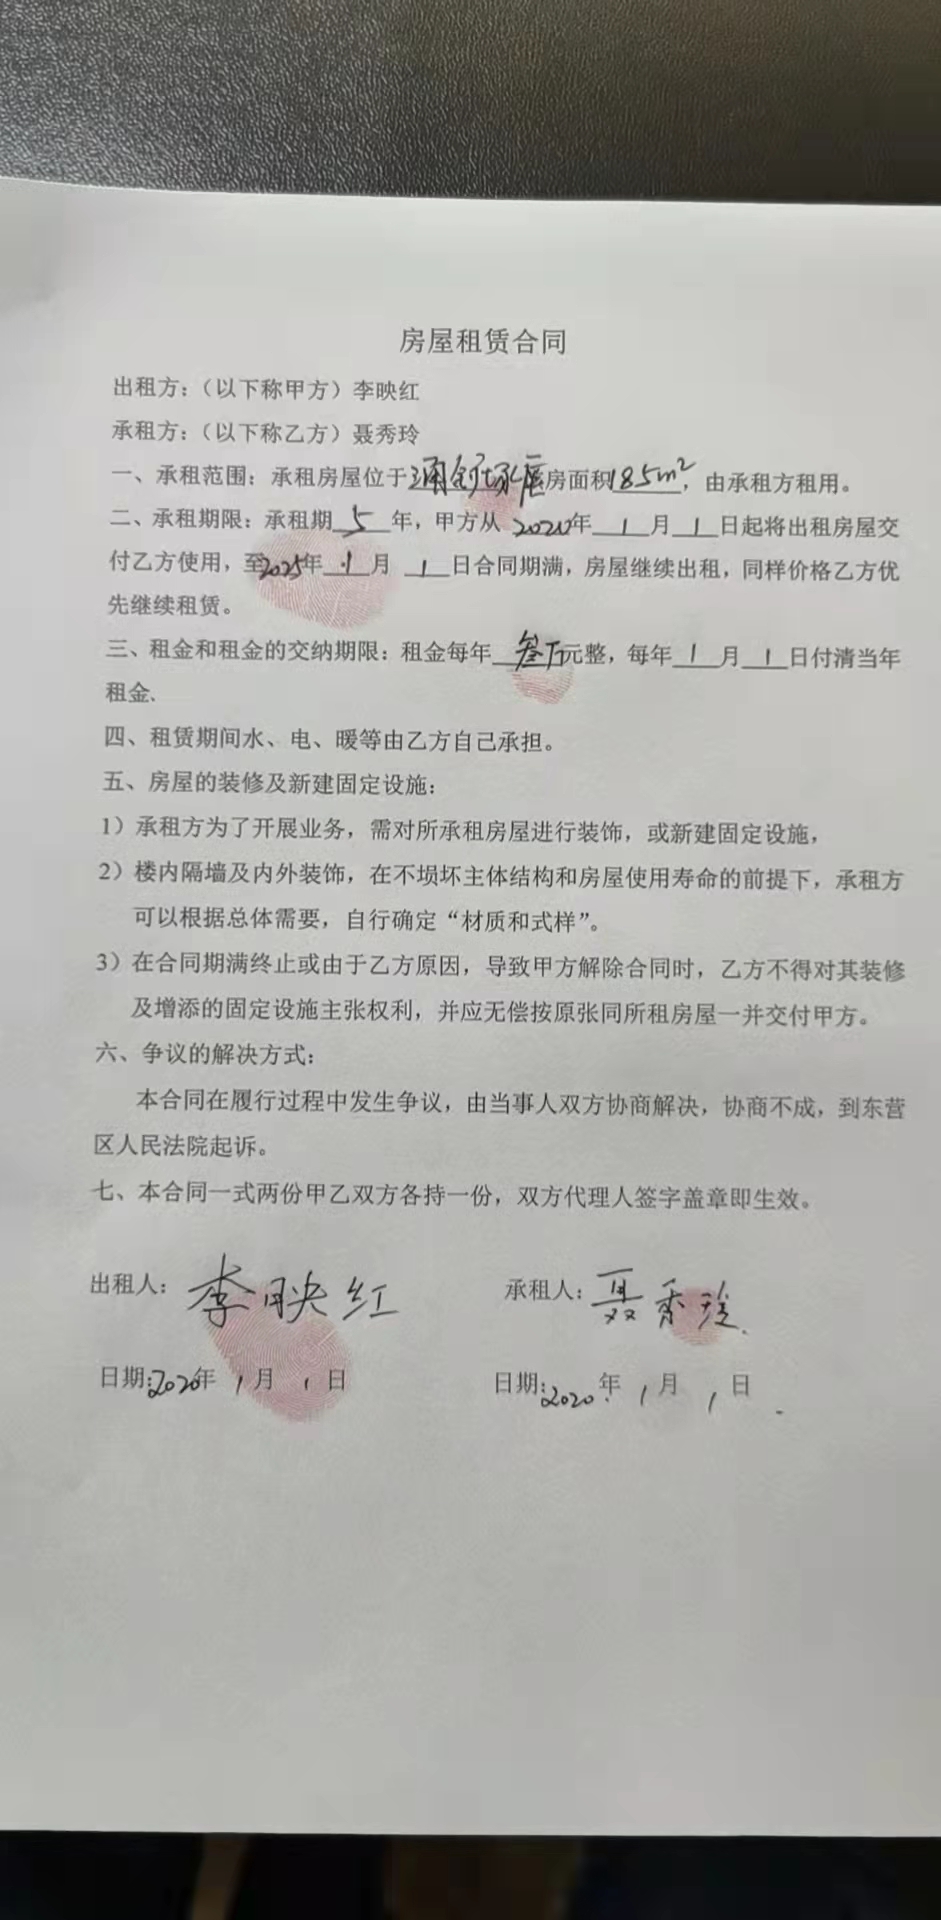 房屋租赁合同
出租方：（以下称甲方）李映红
承租方：（以下称乙方）聂秀玲
一、承租范围：承租房屋位于 房面积185m²，由承租方租用。
二、承租期限：承租期5年，甲方从2020年1月1日起将出租房屋交
付乙方使用，至2025年1月1日合同期满，房屋继续出租，同样价格乙方优
先继续租赁。
三、租金和租金的交纳期限：租金每年叁万元整，每年1月1日付清当年
租金.
四、租赁期间水、电、暖等由乙方自己承担。
五、房屋的装修及新建固定设施：
1）承租方为了开展业务，需对所承租房屋进行装饰，或新建固定设施，
2）楼内隔墙及内外装饰，在不埙坏主体结构和房屋使用寿命的前提下，承租方
可以根据总体需要，自行确定“材质和式样”。
3）在合同期满终止或由于乙方原因，导致甲方解除合同时，乙方不得对其装修
及增添的固定设施主张权利，并应无偿按原张同所租房屋一并交付甲方。
六、争议的解决方式：
本合同在履行过程中发生争议，由当事人双方协商解决，协商不成，到东营
区人民法院起诉。
七、本合同一式两份甲乙双方各持一份，双方代理人签字盖章即生效。
出租人：李映红 承租人：聂秀玲
日期：2020年1月1日 日期：2020年1月1日